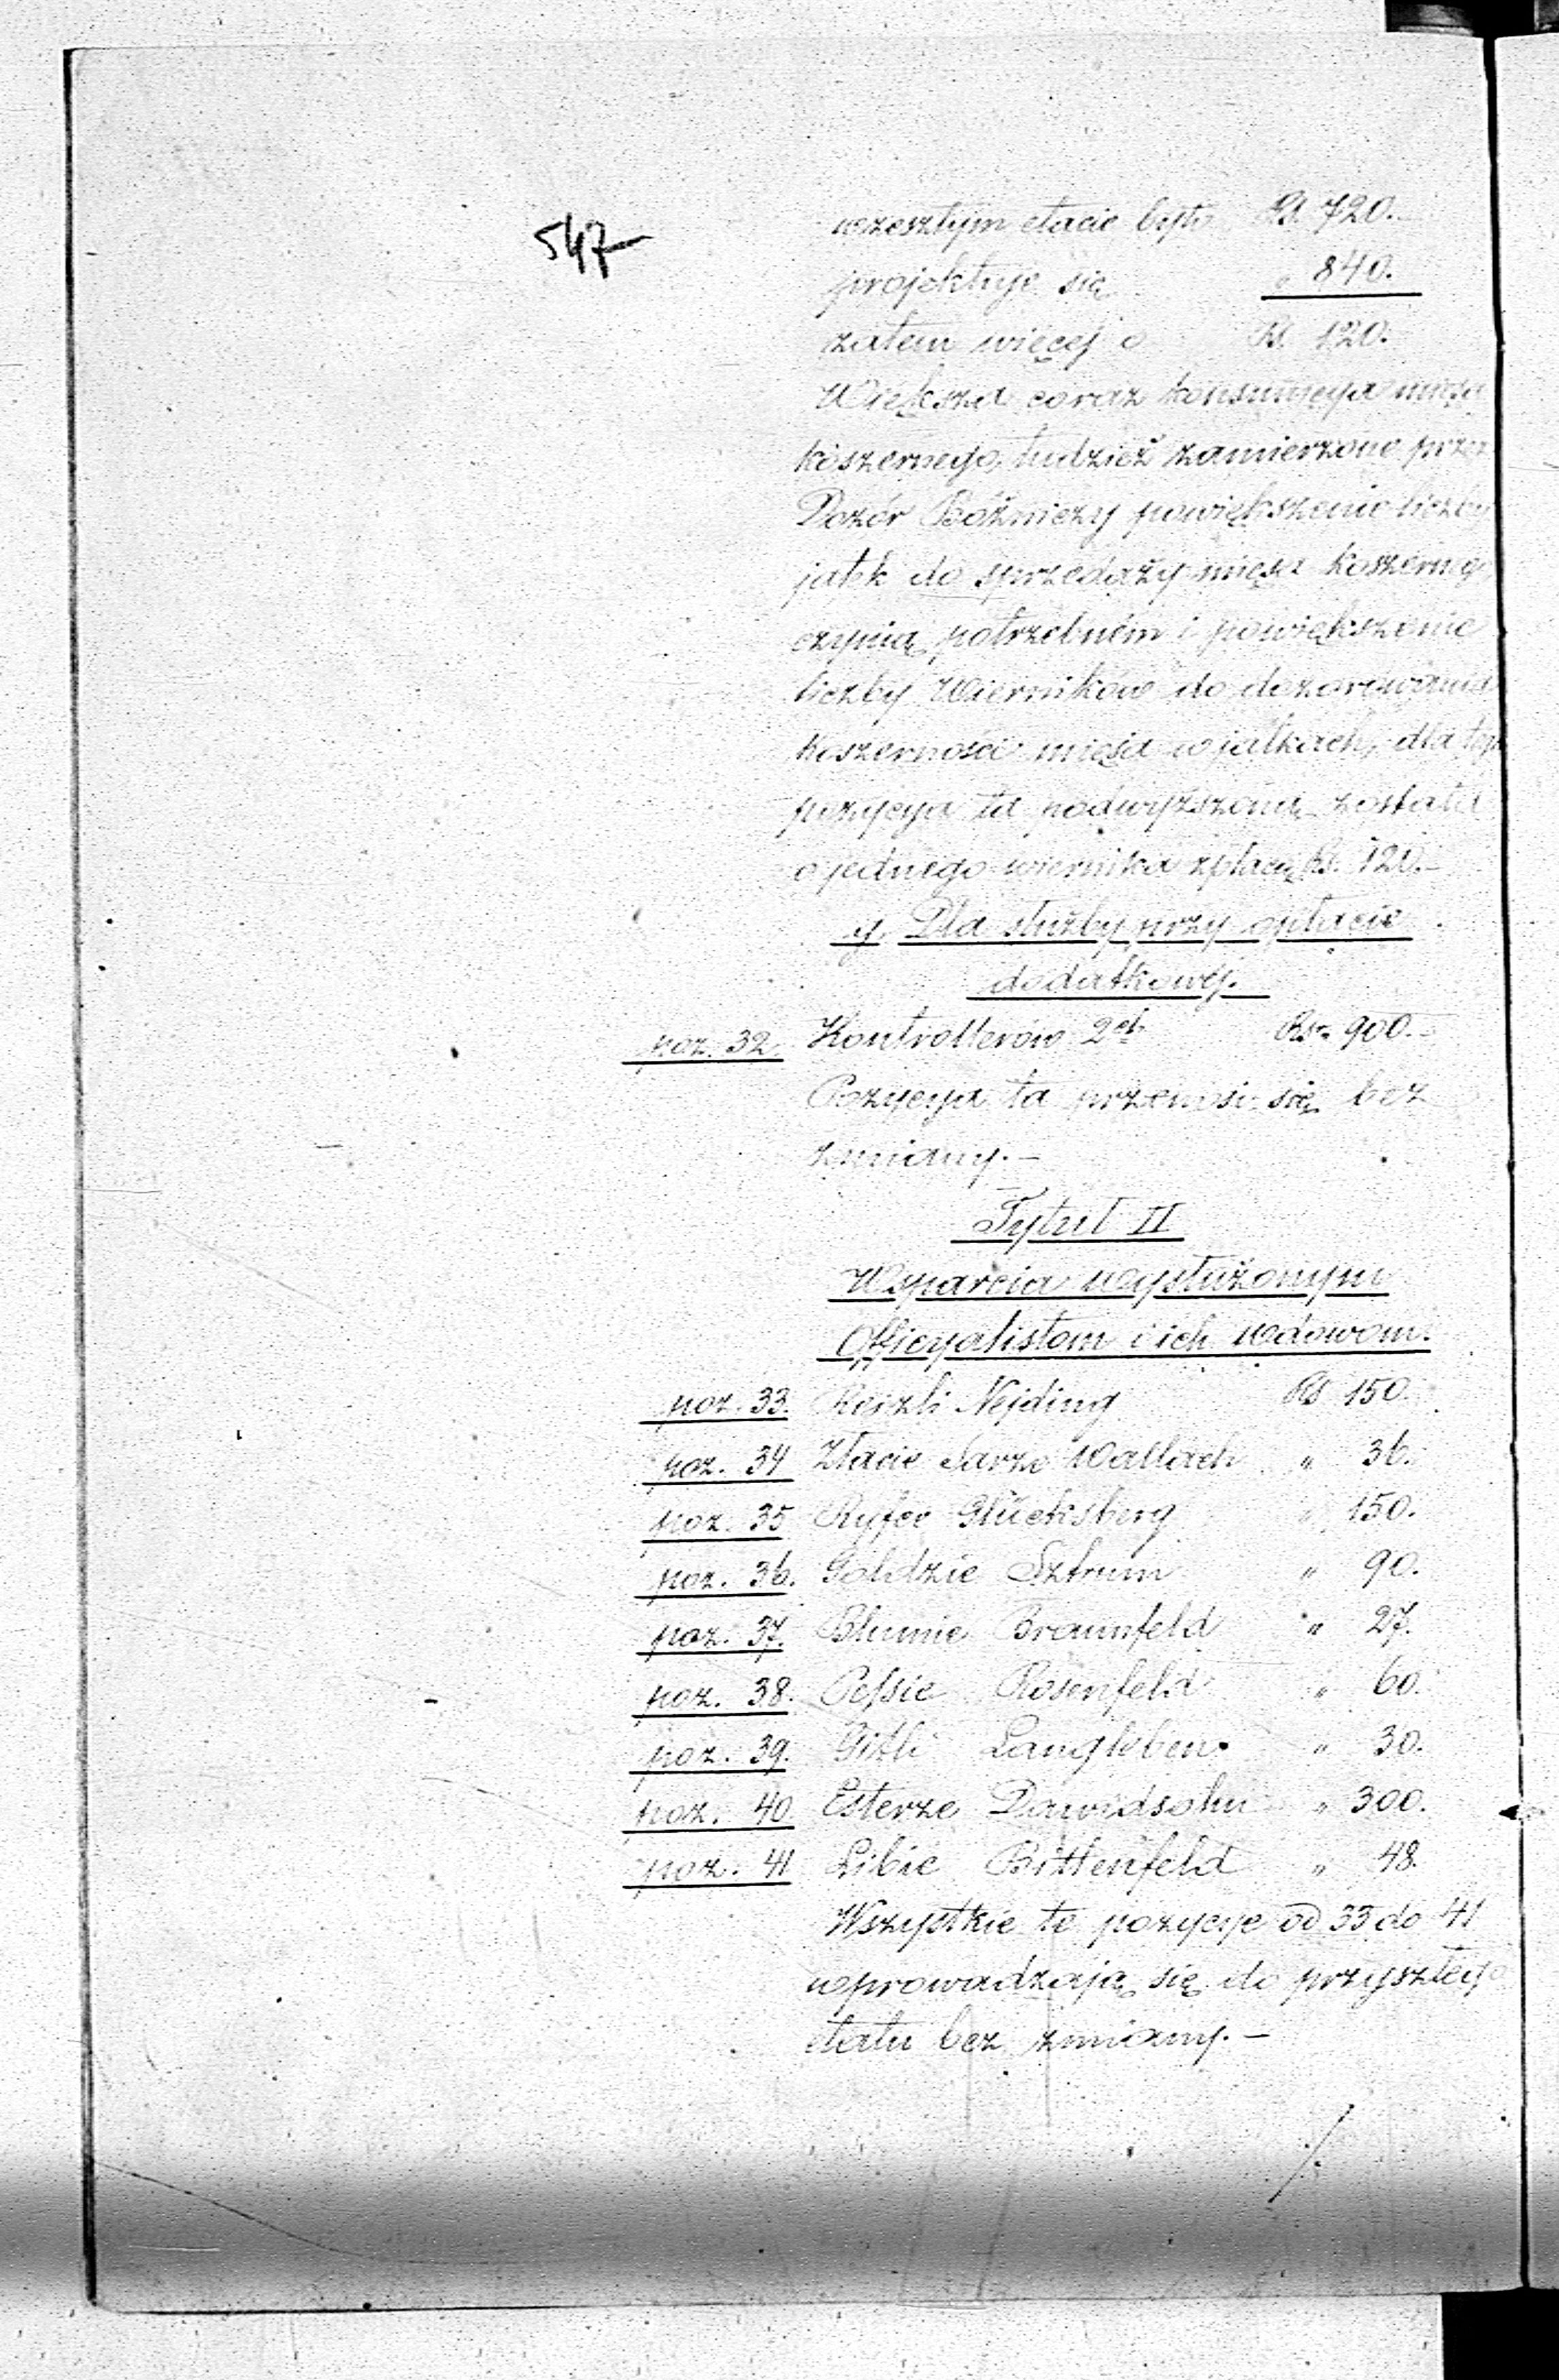 547
wzeszłym etacie było Rs. 720.
projektuje się " 840.
zatem więcej o Rs. 120.
Większa coraz konsumcya mięsa
koszernego, tudzież zamierzone przez
Dozór Bóżniczy powiększenie liczby
jatek do sprzedaży mięsa koszerngo
czynią potrzebném i powiększenie
liczby Wierników do dozorowania
koszerności mięsa w jatkach, dla tego
pozycya ta podwyższoną została
o jednego wiernika z płacą Rs. 120.—
y. Dla służby przy opłacie
dodatkowéj.
poz. 32. Kontrollerów 2ch Rs. 900.—
Pozycya ta przenosi się bez
zmiany.—
Tytuł II
Wsparcia wysłużonym
Officyalistom i ich wdowom.
poz. 33. Reizli Nejding Rs 150.
poz. 34 Złacie Sarze Wallach " 36.
poz. 35 Ryfce Glücksberg " 150.
poz. 36. Goldzie Sztrum " 90.
poz. 37. Blumie Braunfeld " 27.
poz. 38. Pessie Rosenfeld " 60.
poz. 39. Gitli Langleben " 30.
poz. 40. Esterze Dawidsohn " 300.
poz. 41 Libie Bittenfeld " 48.
Wszystkie te pozycye od 33 do 41
wprowadzają się do przyszłego
etatu bez zmiany.—